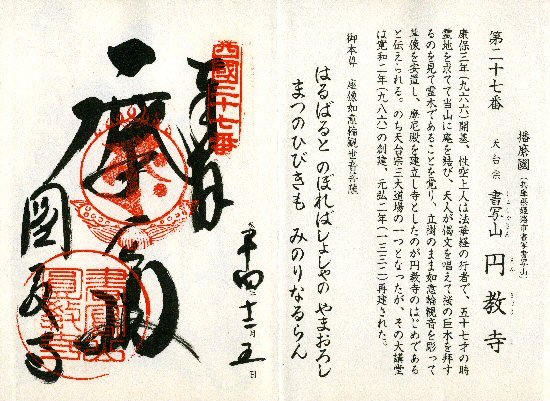 第二十七番
播磨國(兵庫県姫路市書写書写山)
天台宗 書写山 円教寺
しょしゃざん えんきょうじ
康保三年(九六六)開基、性空上人は法華経の行者で、五十七才の時
霊地を求めて当山に庵を結び、天人が偈文を唱えて桜の巨木を拝す
るのを見て霊木であることを覚り、立樹のまま如意輪観音を彫って
尊像を安置し、摩尼殿を建立し寺としたのが円教寺のはじめである
と伝えられる。のち天台宗三大道場の一つとなったが、その大講堂
は寛和二年(九八六)の創建、元弘二年(一三三二)再建された。
御本尊 座像如意輪観世音菩薩
はるばると のぼればしょしゃの やまおろし
まつのひびきも みのりなるらん
西國二十七番
奉拝
平成十四年十二月五日
摩尼殿
圓教寺